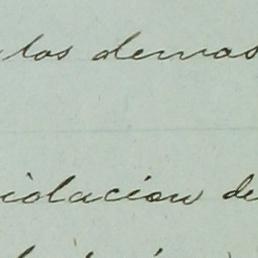 los demas
iolacion de